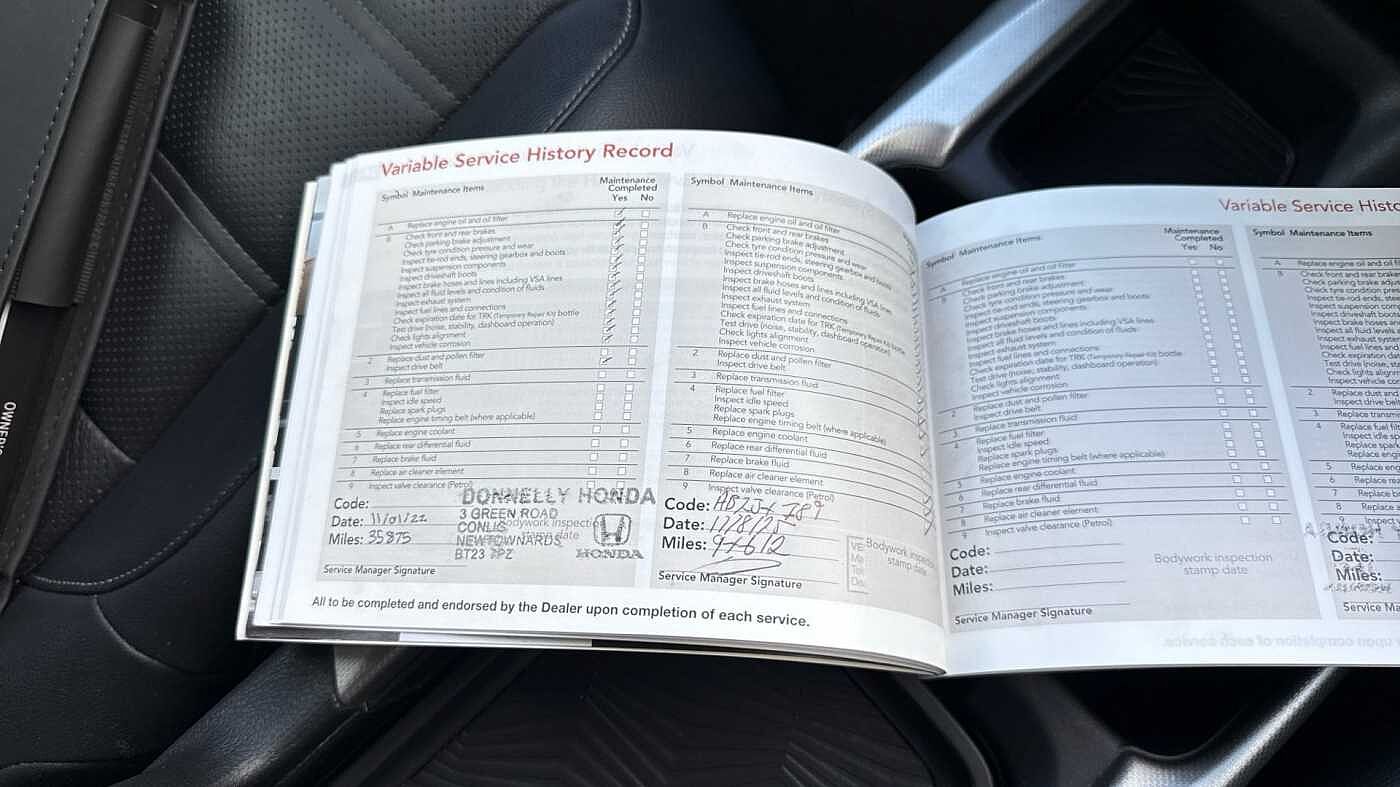 OWNER'S
Variable Service History Record
Symbol Maintenance Items
Maintenance
Completed
Yes No
A Replace engine oil and oil filter
B Check front and rear brakes
Check parking brake adjustment
Check tyre condition pressure and wear
Inspect tie-rod ends, steering gearbox and boots
Inspect suspension components
Inspect driveshaft boots
Inspect brake hoses and lines including VSA lines
Inspect all fluid levels and condition of fluids
Inspect exhaust system
Inspect fuel lines and connections
Check expiration date for TRK (Temporary Repair Kit) bottle
Test drive (noise, stability, dashboard operation)
Check lights alignment
Inspect vehicle corrosion
2 Replace dust and pollen filter
Inspect drive belt
3 Replace transmission fluid
4 Replace fuel filter
Inspect idle speed
Replace spark plugs
Replace engine timing belt (where applicable)
5 Replace engine coolant
6 Replace rear differential fluid
7 Replace brake fluid
8 Replace air cleaner element
9 Inspect valve clearance (Petrol)
Code:
Date: 11/01/22
Miles: 35875
Service Manager Signature
DONNELLY HONDA
3 GREEN ROAD
CONLIG
NEWTOWNARDS
BT23 7PZ
HONDA
Bodywork inspection
stamp date
Symbol Maintenance Items
A Replace engine oil and oil filter
B Check front and rear brakes
Check parking brake adjustment
Check tyre condition pressure and wear
Inspect tie-rod ends, steering gearbox and boots
Inspect suspension components
Inspect driveshaft boots
Inspect brake hoses and lines including VSA lines
Inspect all fluid levels and condition of fluids
Inspect exhaust system
Inspect fuel lines and connections
Check expiration date for TRK (Temporary Repair Kit) bottle
Test drive (noise, stability, dashboard operation)
Check lights alignment
Inspect vehicle corrosion
2 Replace dust and pollen filter
Inspect drive belt
3 Replace transmission fluid
4 Replace fuel filter
Inspect idle speed
Replace spark plugs
Replace engine timing belt (where applicable)
5 Replace engine coolant
6 Replace rear differential fluid
7 Replace brake fluid
8 Replace air cleaner element
9 Inspect valve clearance (Petrol)
Code:
Date: 17/8/25
Miles: 94612
Service Manager Signature
Bodywork inspec
stamp date
All to be completed and endorsed by the Dealer upon completion of each service.
Variable Service Histo
Symbol Maintenance Items
Maintenance
Completed
Yes No
A Replace engine oil and oil filter
B Check front and rear brakes
Check parking brake adjustment
Check tyre condition pressure and wear
Inspect tie-rod ends, steering gearbox and boots
Inspect suspension components
Inspect driveshaft boots
Inspect brake hoses and lines including VSA lines
Inspect all fluid levels and condition of fluids
Inspect exhaust system
Inspect fuel lines and connections
Check expiration date for TRK (Temporary Repair Kit) bottle
Test drive (noise, stability, dashboard operation)
Check lights alignment
Inspect vehicle corrosion
2 Replace dust and pollen filter
Inspect drive belt
3 Replace transmission fluid
4 Replace fuel filter
Inspect idle speed
Replace spark plugs
Replace engine timing belt (where applicable)
5 Replace engine coolant
6 Replace rear differential fluid
7 Replace brake fluid
8 Replace air cleaner element
9 Inspect valve clearance (Petrol)
Code:
Date:
Miles:
Service Manager Signature
Bodywork inspection
stamp date
Symbol Maintenance Items
A Replace engine oil and oil f
B Check front and rear brakes
Check parking brake adjust
Check tyre condition pres
Inspect tie-rod ends, ste
Inspect suspension comp
Inspect driveshaft boots
Inspect brake hoses
Inspect all fluid levels
Inspect exhaust system
Inspect fuel lines and
Check expiration date
Test drive (noise, stab
Check lights alignm
Inspect vehicle cor
2 Replace dust and
Inspect drive belt
3 Replace transm
4 Replace fuel filt
Inspect idle spe
Replace spark
Replace engin
5 Replace eng
6 Replace rea
7 Replace b
8 Replace
9 Inspect
Code:
Date:
Miles:
Service Ma